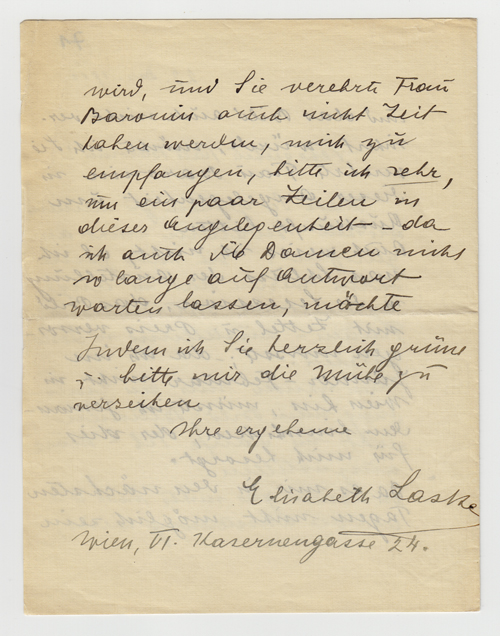 wird, und Sie verehrte Frau
Baronin auch nicht Zeit
haben werden, mich zu
empfangen, bitte ich sehr,
um ein paar Zeilen in
dieser Angelegenheit – da
ich auch die Damen nicht
so lange auf Antwort
warten lassen, möchte
Indem ich Sie herzlich grüße
bitte mir die Mühe zu
verzeihen
Ihre ergebene
Elisabeth Laske
Wien, VI. Kasernengasse 24.